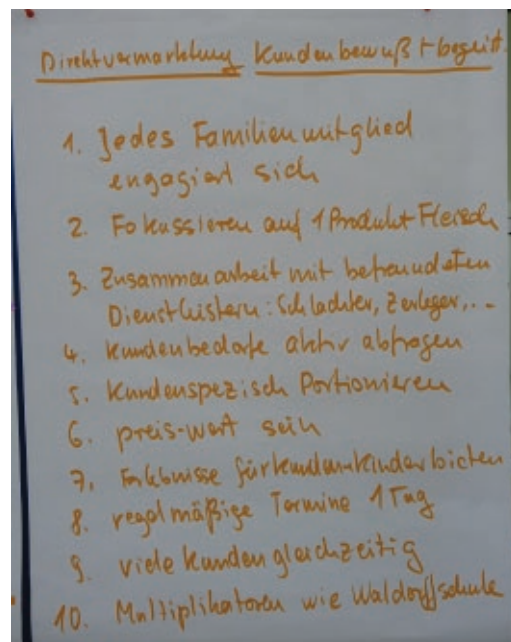 Direktvermarktung Kundenbewußt + begeist.
1. Jedes Familienmitglied
engagiert sich
2. Fokussieren auf 1 Produkt Fleisch
3. Zusammenarbeit mit befreundeten
Dienstleistern: Schlachter, Zerleger,...
4. Kundenbedarfe aktiv abfragen
5. Kundenspezisch Portionieren
6. preis-wert sein
7. Erlebnisse für Kunden + Kinder bieten
8. regelmäßige Termine 1 Tag
9. viele Kunden gleichzeitig
10. Multiplikatoren wie Waldorfschule